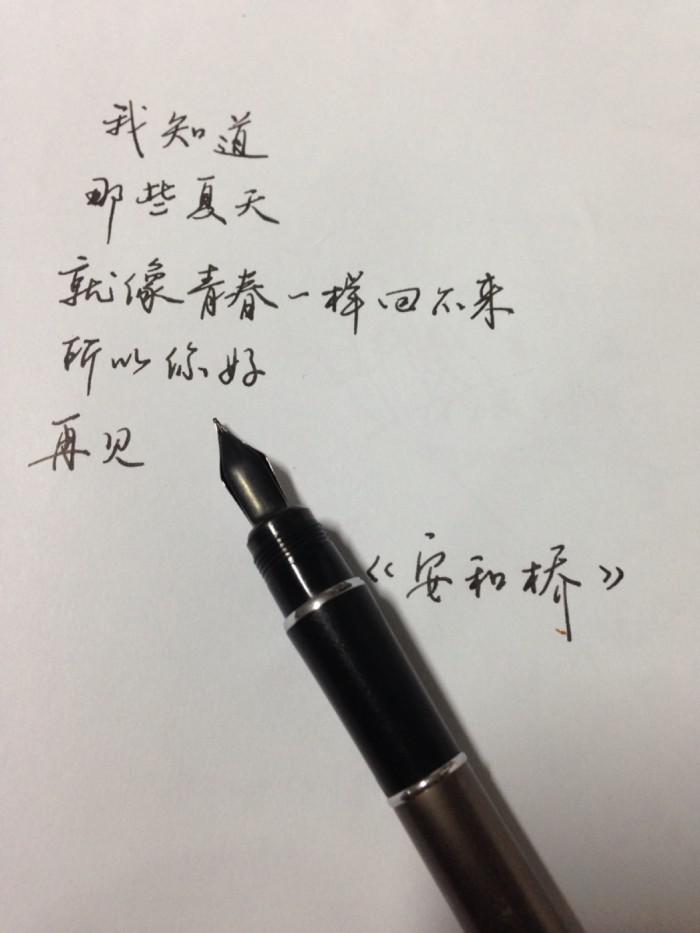 我知道
那些夏天
就像青春一样回不来
所以你好
再见
《安和桥》